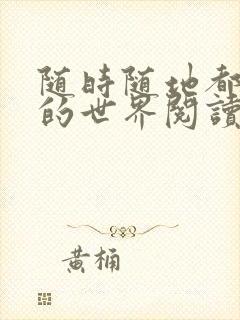 随時随地都
的世界閱讀
黃桶